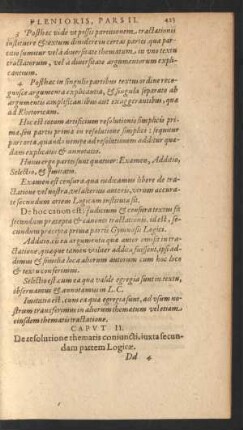 PLENIORIS, PARS II. 425
3 Posthac vide ut possis partitionem, tractationis
instituere & textum dividere in certas partes, qua par-
titio sumitur vel à diversitate thematum, in vno textu
tractatorum, vel à diversitate argumentorum expli-
cantium.
4 Posthac in singulis partibus textus ordine reco-
gnosce argumenta explicantia, & singula separata ab
argumentis amplificantibus aut exaggerantibus, qua
ad Rhetoricam.
Hoc est totum artificium resolutionis simplicis pri-
ma, seu partis prima in resolutione simplice: sequitur
pars altera, quando nempe ad resolutionem additur qua-
dam explicatio & annotatio.
Huius ergo partes sunt quatuor. Examen, Additio,
Selectio, & Imitatio.
Examen est censura, qua indicamus libere de tra-
ctatione vel nostra, vel alterius autoris, verum accura-
te secundum artem Logicam instituta sit.
De hoc canon est: judicium & censura textus fit
secundum praecepta & canones tractationis, id est, se-
cundum praecepta prima partis Gymnasii Logici.
Additio, est ea argumenta qua autor omisit in tra-
ctatione, quaque tamen utiliter addita fuissent, ipsi ad-
dimus & similia loca aliorum autorum cum hoc loco
& textu conferimus.
Selectio est cum ea qua valde egregia sunt in textu,
observamus & annotamus in L.C.
Imitatio est, cum ea qua egregia sunt, ad usum no-
strum transferimus in aliorum thematum vel etiam,
eiusdem thematis tractatione.
CAPVT II.
De resolutione thematis coniuncti, iuxta secun-
dam partem Logicæ.
Dd 4